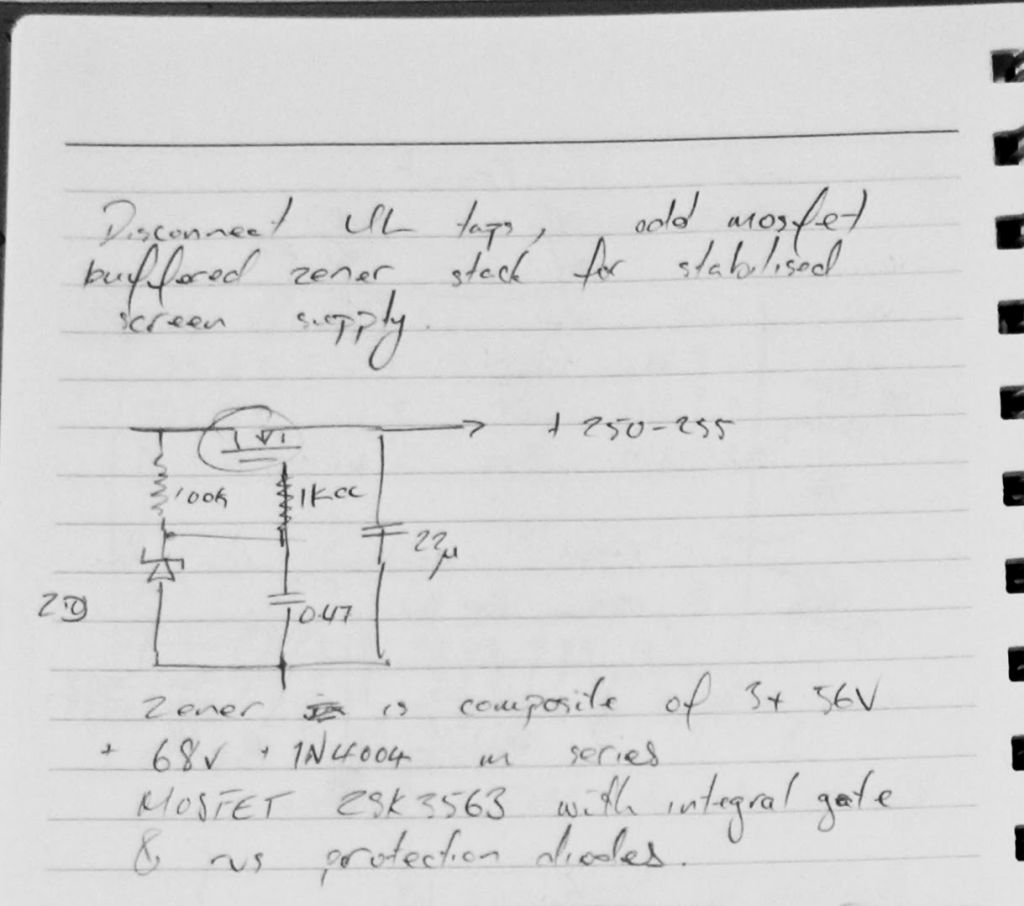 Disconnect UL taps, add mosfet
buffered zener stack for stabilised
screen supply.
+ 250-255
100k
1K cc
22μ
ZD
0.47
Zener is composite of 3x 56V
+ 68V + 1N4004 in series
MOSFET 2SK3563 with integral gate
& rvs protection diodes.